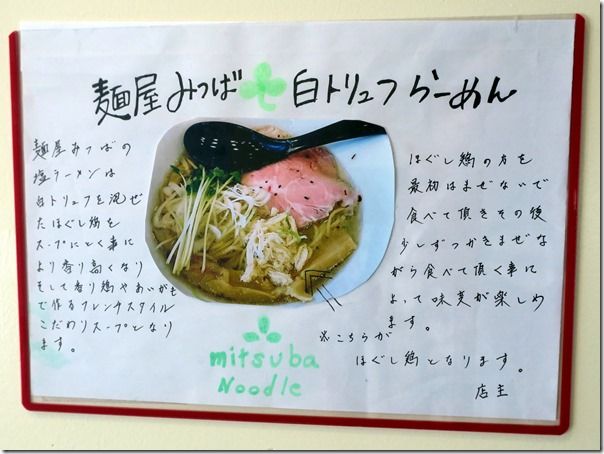 麺屋みつば 白トリュフらーめん
麺屋みつばの
塩ラーメンは
白トリュフを混ぜ
たほぐし鶏を
スープにとく事に
より香り高くなり
そして香り鶏やあいがも
で作るフレンチスタイル
こだわりスープとなり
ます。
ほぐし鶏の方を
最初はまぜないで
食べて頂きその後
少しずつかきまぜな
がら食べて頂く事に
よって味変が楽しめ
ます。
※こちらが
ほぐし鶏となります。
店主
mitsuba
Noodle